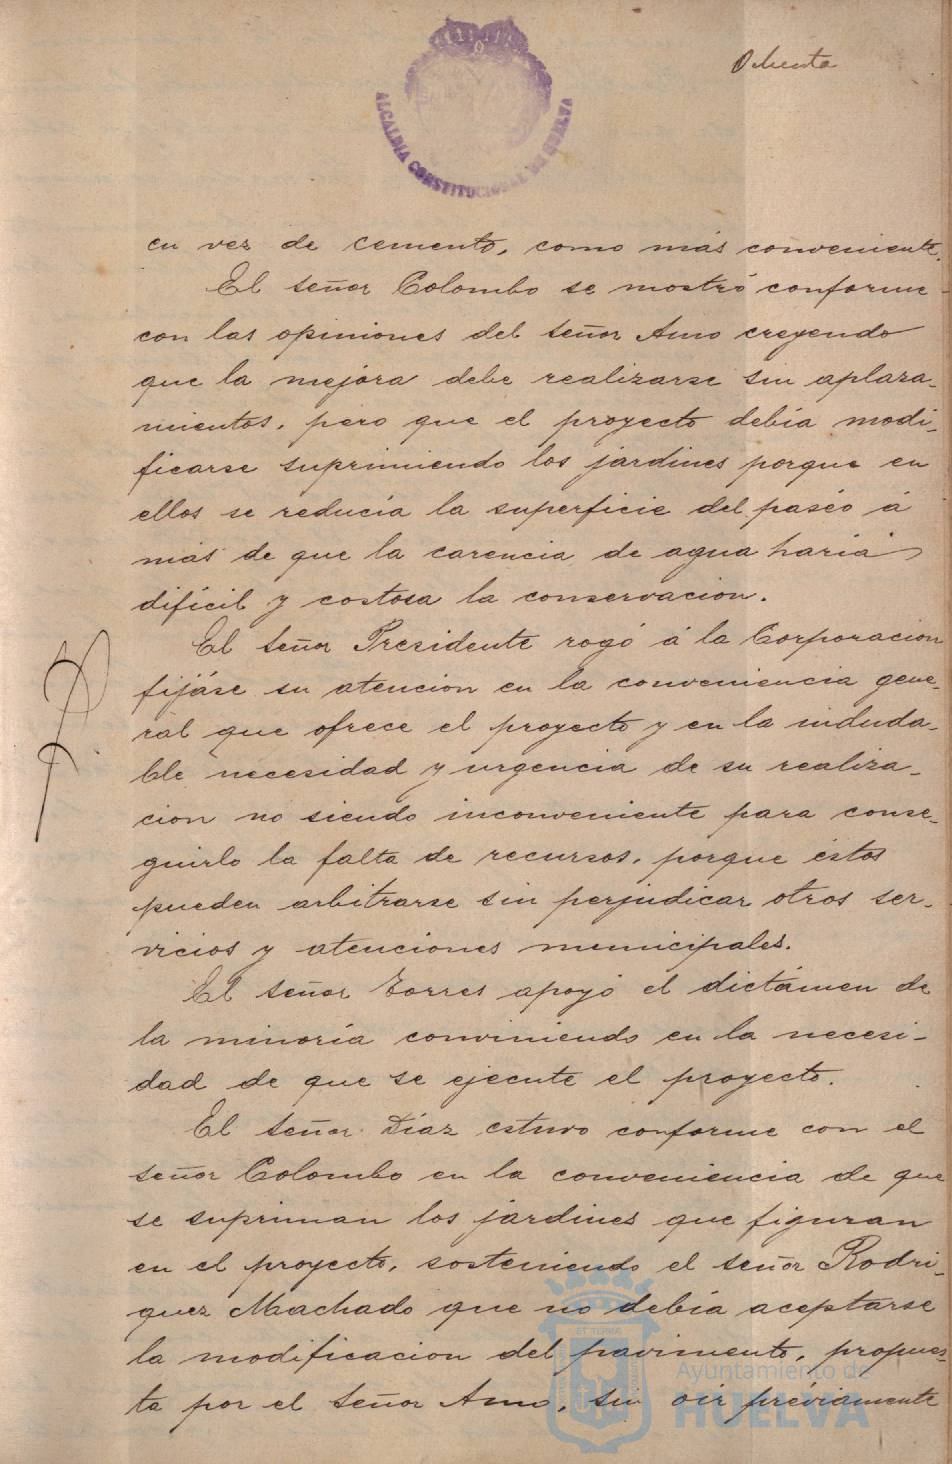 Ochenta
ALCALDIA CONSTITUCIONAL DE HUELVA
en vez de cemento, como más conveniente.
El señor Colombo se mostró conforme
con las opiniones del señor Amo creyendo
que la mejora debe realizarse sin aplaza-
mientos, pero que el proyecto debía modi-
ficarse suprimiendo los jardines porque en
ellos se reducía la superficie del paséo á
más de que la carencia de agua haría
difícil y costosa la conservacion.
El señor Presidente rogó á la Corporacion
fijáse su atencion en la conveniencia gene-
ral que ofrece el proyecto y en la induda-
ble necesidad y urgencia de su realiza-
cion no siendo inconveniente para conse-
guirlo la falta de recursos, porque éstos
pueden arbitrarse sin perjudicar otros ser-
vicios y atenciones municipales.
El señor Torres apoyó el dictámen de
la minoría conviniendo en la necesi-
dad de que se ejecute el proyecto.
El señor Díaz estuvo conforme con el
señor Colombo en la conveniencia de que
se supriman los jardines que figuran
en el proyecto, sosteniendo el señor Rodri-
guez Machado que no debía aceptarse
la modificacion del pavimento, propues-
ta por el señor Amo, sin oir préviamente
Ayuntamiento de
HUELVA